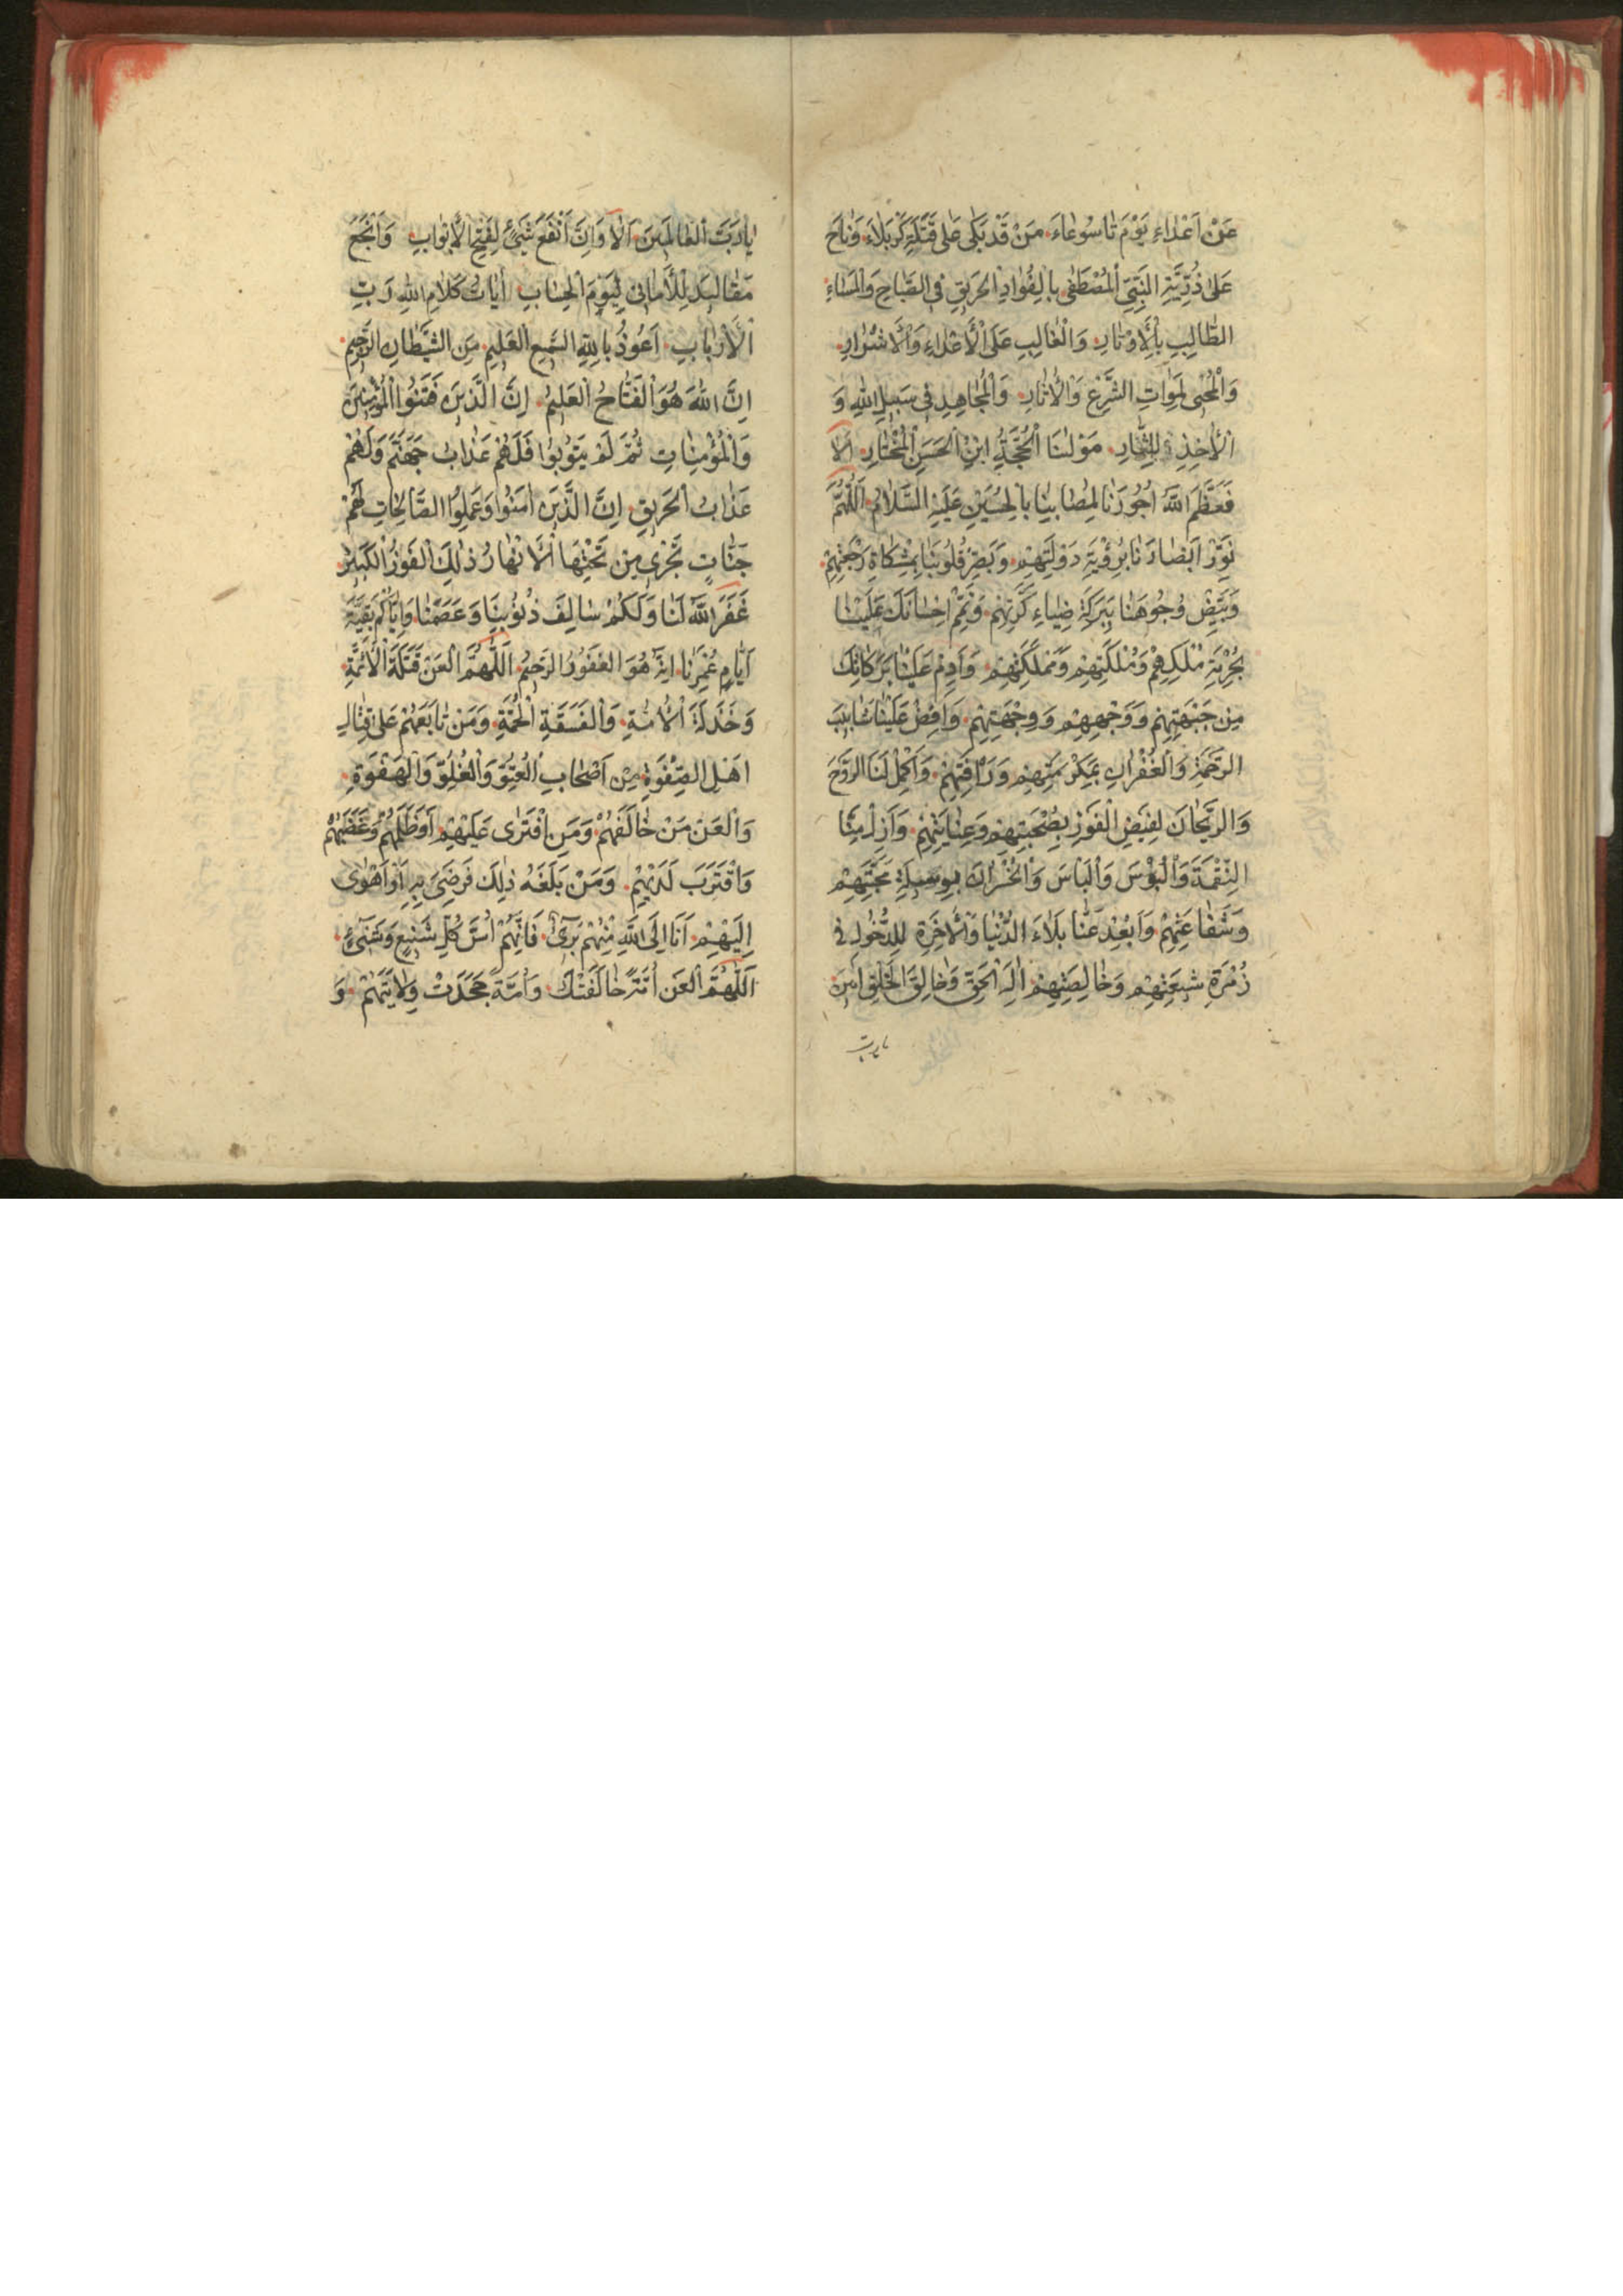 عَنْ اَعْدٰاءِ يَوْمَ تٰاسُوعٰاءَ مَنْ قَدْ بَكٰى عَلٰى قَتْلَةِ كَرْبَلاءَ وَنٰاحَ
عَلٰى ذُرِّيَّةِ النَّبِيِّ الْمُصْطَفٰى بِالْفُؤٰادِ الْحَرِيقِ فِى الصَّبٰاحِ وَالْمَسٰاءِ
الطّٰالِبِ بِالْأَوْتٰارِ وَالْغٰالِبِ عَلَى الْأَعْدٰاءِ وَالْأَشْرٰارِ
وَالْمُحْيِى لِمَوٰاتِ الشَّرْعِ وَالْأٰثٰارِ وَالْمُجٰاهِدِ فِى سَبِيلِ اللهِ وَ
الْأٰخِذِ لِلثّارِ مَوْلٰنَا الْحُجَّةُ ابْنِ الْحَسَنِ الْمُخْتٰارِ اَلا
فَعَظَّمَ اللهُ اُجُورَنٰا لِمُصٰابِنٰا بِالْحُسَيْنِ عَلَيْهِ السَّلامُ اَللّٰهُمَّ
نَوِّرْ اَبْصٰارَنٰا بِرُؤْيَةِ دَوْلَتِهِمْ وَبَصِّرْ قُلُوبَنٰا بِمِشْكٰاةِ رَجْعَتِهِمْ
وَبَيِّضْ وُجُوهَنٰا بِبَرَكَةِ ضِيٰاءِ كَرَّتِهِمْ وَتَمِّمْ اِحْسٰانَكَ عَلَيْنٰا
بِحُرْمَةِ مُلْكِهِمْ وَمُلْكَتِهِمْ وَمَمْلَكَتِهِمْ وَاَدِمْ عَلَيْنٰا بَرَكٰاتِكَ
مِنْ جَبْهَتِهِمْ وَوَجْهِهِمْ وَوِجْهَتِهِمْ وَاَفِضْ عَلَيْنٰا شَٰابِيبَ
الرَّحْمَةِ وَالْغُفْرٰانِ بِمَكْرُمَتِهِمْ وَرَأْفَتِهِمْ وَاَكْمِلْ لَنَا الرَّوْحَ
وَالرَّيْحٰانَ لِفَيْضِ الْفَوْزِ بِصُحْبَتِهِمْ وَعِنٰايَتِهِمْ وَاَزِلْ مِنّٰا
النِّقْمَةَ وَالْبُؤْسَ وَالْبَأْسَ وَالْخُسْرٰانَ بِوَسِيلَةِ مَحَبَّتِهِمْ
وَشَفٰاعَتِهِمْ وَاَبْعِدْ عَنّٰا بَلاءَ الدُّنْيٰا وَالْأٰخِرَةِ لِلدُّخُولِ فِى
زُمْرَةِ شِيعَتِهِمْ وَخٰالِصَتِهِمْ اِلٰهَ الْحَقِّ وَخٰالِقَ الْخَلْقِ اٰمِينَ
يارب
يٰارَبَّ الْعٰالَمِينَ اَلاٰ وَاِنَّ اَنْفَعَ شَيْئٍ لِفَتْحِ الْأَبْوٰابِ وَاَنْجَعَ
مَقٰالِيدَ لِلْأَمٰانِى لِيَوْمِ الْحِسٰابِ اٰيٰاتُ كَلامِ اللهِ رَبِّ
الْأَرْبٰابِ اَعُوذُ بِاللهِ السَّمِيعِ الْعَلِيمِ مِنَ الشَّيْطٰانِ الرَّجِيمِ
اِنَّ اللهَ هُوَ الْفَتّٰاحُ الْعَلِيمُ اِنَّ الَّذِينَ فَتَنُوا الْمُؤْمِنِينَ
وَالْمُؤْمِنٰاتِ ثُمَّ لَمْ يَتُوبُوا فَلَهُمْ عَذٰابُ جَهَنَّمَ وَلَهُمْ
عَذٰابُ الْحَرِيقِ اِنَّ الَّذِينَ اٰمَنُوا وَعَمِلُوا الصّٰالِحٰاتِ لَهُمْ
جَنّٰاتٍ تَجْرِى مِنْ تَحْتِهَا الْأَنْهٰارُ ذٰلِكَ الْفَوْزُ الْكَبِيرُ
غَفَرَ اللهُ لَنٰا وَلَكُمْ سٰالِفَ ذُنُوبِنٰا وَعَصَمَنٰا وَاِيّٰاكُمْ بَقِيَّةَ
اَيّٰامِ عُمْرِنٰا اِنَّهُ هُوَ الْغَفُورُ الرَّحِيمُ اَللّٰهُمَّ الْعَنْ قَتَلَةَ الْأَئِمَّةِ
وَخَذَلَةَ الْأُمَّةِ وَالْفَسَقَةِ وَمَنْ تٰابَعَهُمْ عَلٰى قِتٰالِ
اَهْلِ الصَّفْوَةِ مِنْ اَصْحٰابِ الْعُتُوِّ وَالْغُلُوِّ وَالْهَفْوَةِ
وَالْعَنْ مَنْ خٰالَفَهُمْ وَمَنِ افْتَرٰى عَلَيْهِمْ اَوْ ظَلَمَهُمْ وَغَصَبَهُمْ
وَاقْتَرَبَ لَدَيْهِمْ وَمَنْ بَلَغَهُ ذٰلِكَ فَرَضِىَ بِهِ اَوْ اَهْوٰى
اِلَيْهِمْ اَنَا اِلَى اللهِ مِنْهُمْ بَرِىٓءٌ فَاِنَّهُمْ اُسُّ كُلِّ شَنِيعٍ وَشَنِىْءٍ
اَللّٰهُمَّ الْعَنْ اُمَّةً خٰالَفَتْكَ وَاُمَّةً جَحَدَتْ وِلايَتَهُمْ وَ